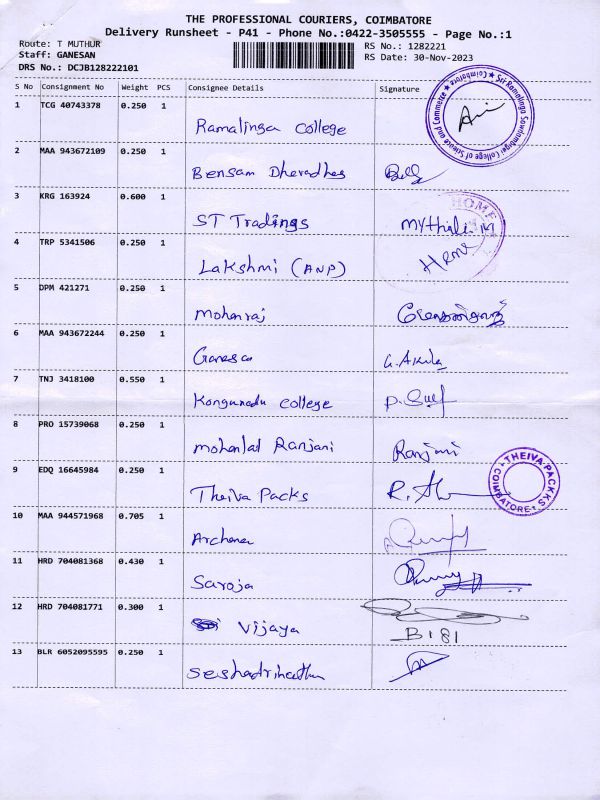 THE PROFESSIONAL COURIERS, COIMBATORE
Delivery Runsheet - P41 - Phone No.:0422-3505555 - Page No.:1
Route: T MUTHUR
RS No.: 1282221
Staff: GANESAN
RS Date: 30-Nov-2023
DRS No.: DCJB128222101
S No Consignment No Weight PCS Consignee Details Signature
1 TCG 40743378 0.250 1
Ramalinga College
Sri Ramalinga Sowdambigai College of Science and Commerce ★ Coimbatore ★
2 MAA 943672109 0.250 1
Bensam
3 KRG 163924 0.600 1
HOME
ST Tradings Mythili M
4 TRP 5341506 0.250 1
Lakshmi (ANP)
5 DPM 421271 0.250 1
Mohanraj
6 MAA 943672244 0.250 1
Ganesa G. Akila
7 TNJ 3418100 0.550 1
Kongunadu College
8 PRO 15739068 0.250 1
Mohanlal Ranjani Ranjini
9 EDQ 16645984 0.250 1
Theiva Packs
THEIVA PACKKS COIMBATORE
10 MAA 944571968 0.705 1
Archana
11 HRD 704081368 0.430 1
Saroja
12 HRD 704081771 0.300 1
Vijaya B181
13 BLR 6052095595 0.250 1